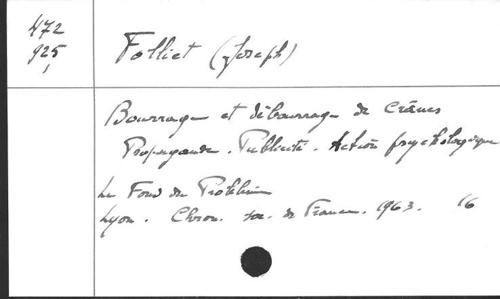 472
925
Folliet (Joseph)
Bourrage et débourrage de Crânes
Propagande. Publicité. Action psychologique
Le Fond du Problème
Lyon. Chron. soc. de France. 1963. 16